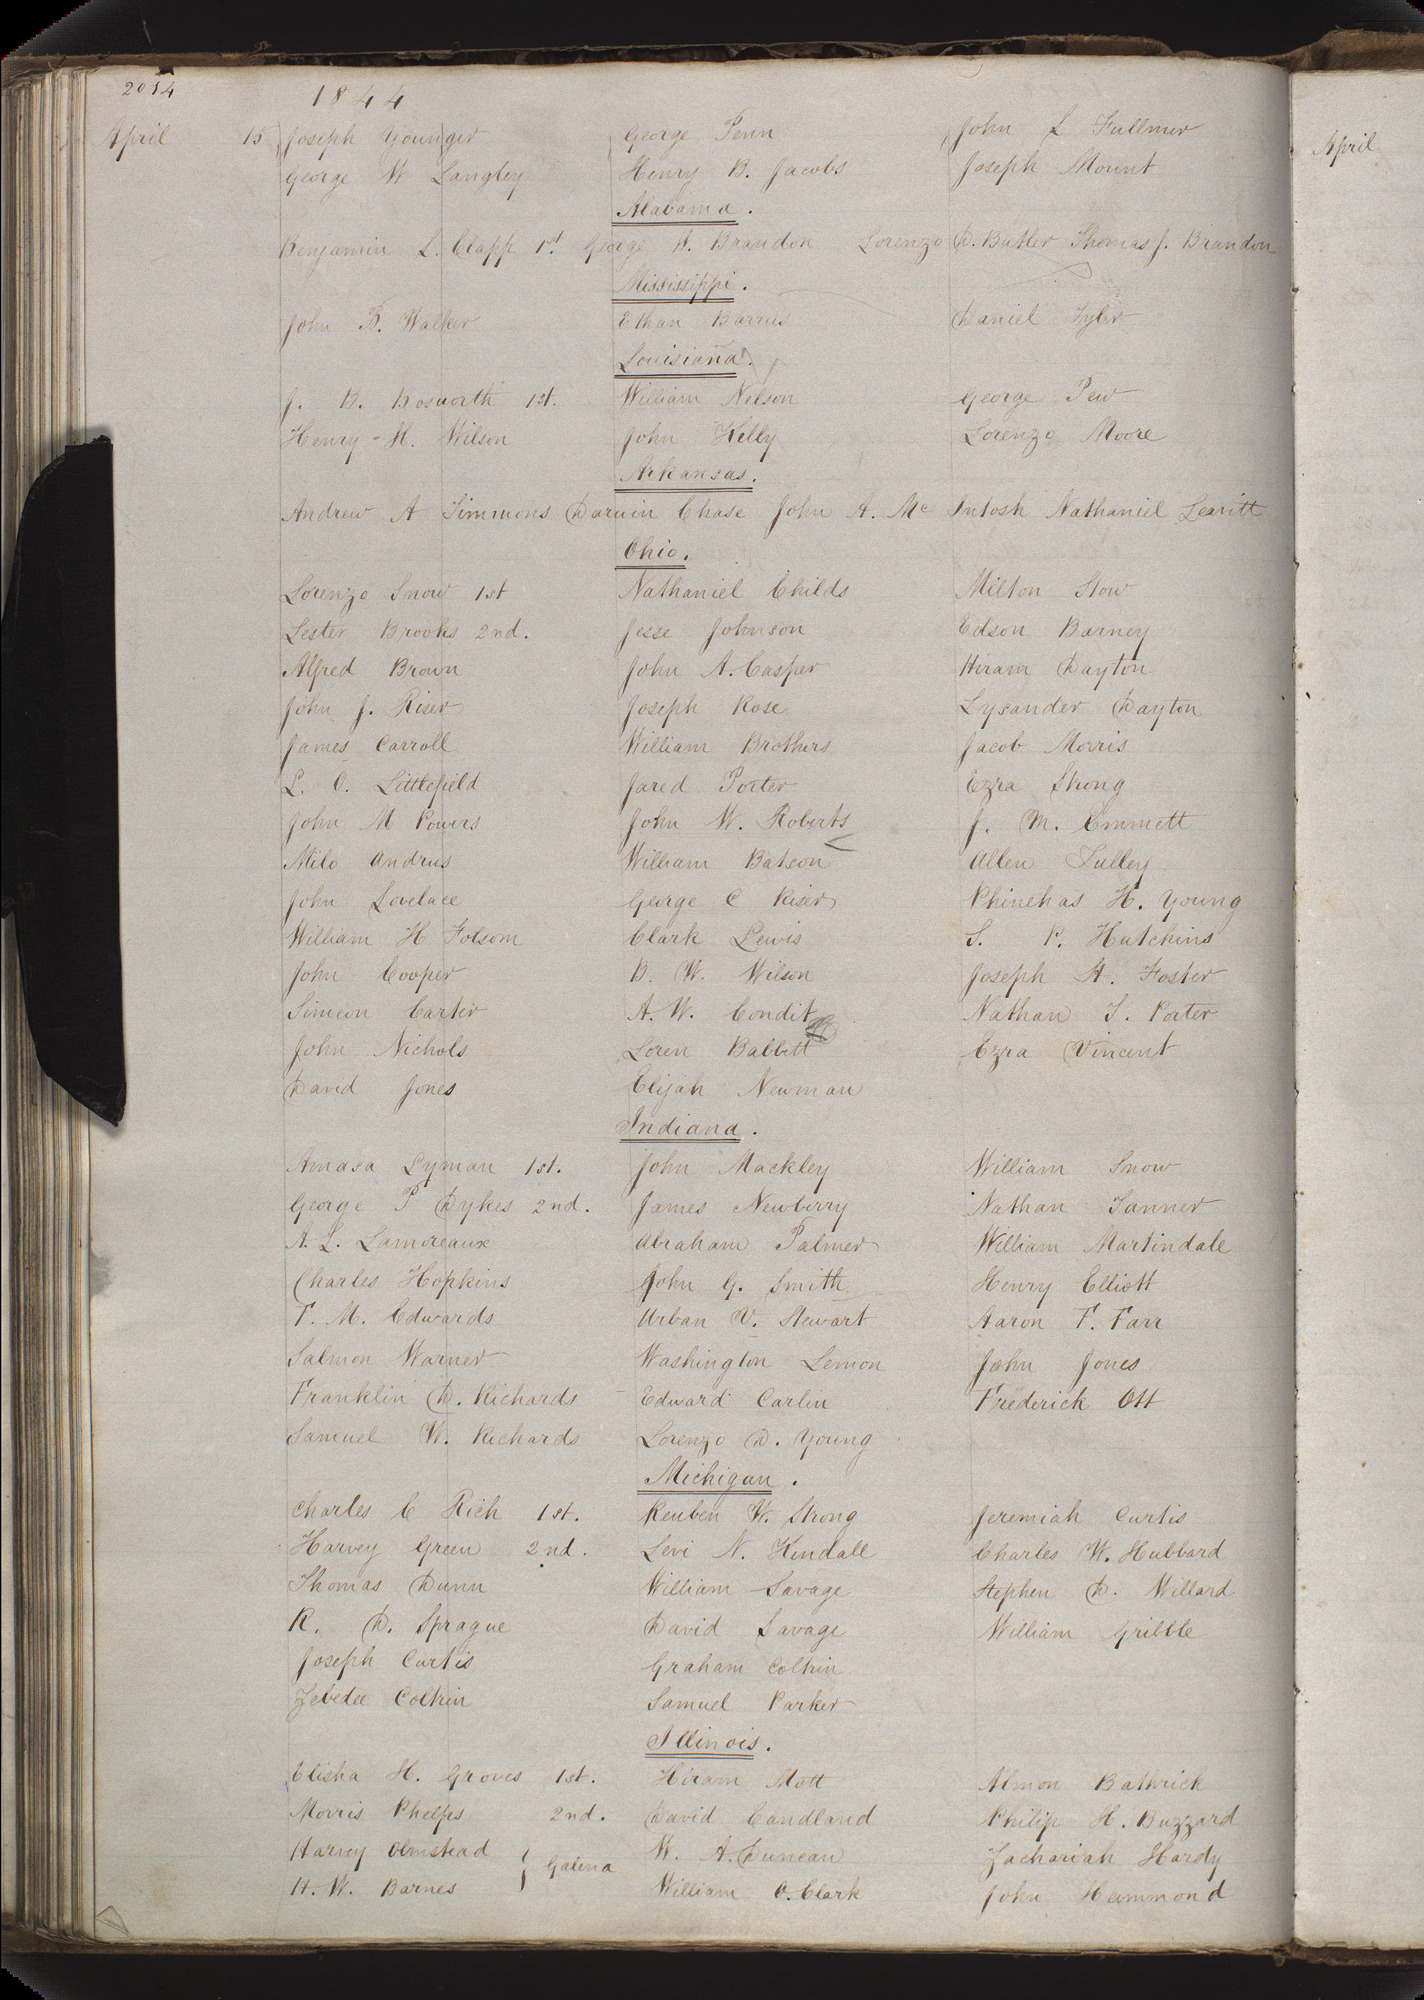 2014
1844
April 15 Joseph Younger George Penn John L Fullmer
George W Langley Henry B. Jacobs Joseph Mount
Alabama.
Benjamin L. Clapp 1st George W. Brandon Lorenzo D. Butler Thomas J. Brandon
Mississippi.
John B. Walker Ethan Barrus Daniel Tyler
Louisiana.
J. B. Bosworth 1st. William Nelson George Pew
Henry H. Wilson John Kelly Lorenzo Moore
Arkansas.
Andrew A Timmons Darwin Chase John A. Mc Intosh Nathaniel Leavitt
Ohio.
Lorenzo Snow 1st Nathaniel Childs Milton Stow
Lester Brooks 2nd. Jesse Johnson Edson Barney
Alfred Brown John A. Casper Hiram Dayton
John J. Riser Joseph Rose Lysander Dayton
James Carroll William Brothers Jacob Morris
L. O. Littlefield Jared Porter Ezra Strong
John M Powers John W. Roberts J. M. Emmett
Milo Andrus William Batson Allen Tulley
John Lovelace George C Riser Phinehas H. Young
William H Folsom Clark Lewis S. P. Hutchins
John Cooper B. W. Wilson Joseph A. Foster
Simeon Carter A. W. Condit Nathan T. Porter
John Nichols Loren Babbitt Ezra Vincent
David Jones Elijah Newman
Indiana.
Amasa Lyman 1st. John Mackley William Snow
George P Dykes 2nd. James Newberry Nathan Tanner
A. L. Lamoreaux Abraham Palmer William Martindale
Charles Hopkins John G. Smith Henry Elliott
F. M. Edwards Urban V. Stewart Aaron F. Farr
Salmon Warner Washington Lemon John Jones
Franklin D. Richards Edward Carlin Frederick Ott
Samuel W. Richards Lorenzo D. Young
Michigan.
Charles C Rich 1st. Reuben W. Strong Jeremiah Curtis
Harvey Green 2nd. Levi N. Kendall Charles W. Hubbard
Thomas Dunn William Savage Stephen D. Willard
R. D. Sprague David Savage William Gribble
Joseph Curtis Graham Coltrin
Zebedee Coltrin Samuel Parker
Illinois.
Elisha H. Groves 1st. Hiram Mott Almon Bathrick
Morris Phelps 2nd. David Candland Philip H. Buzzard
Harvey Olmstead W. A. Duncan Zachariah Hardy
Galena
H. W. Barnes William O. Clark John Hammond
April